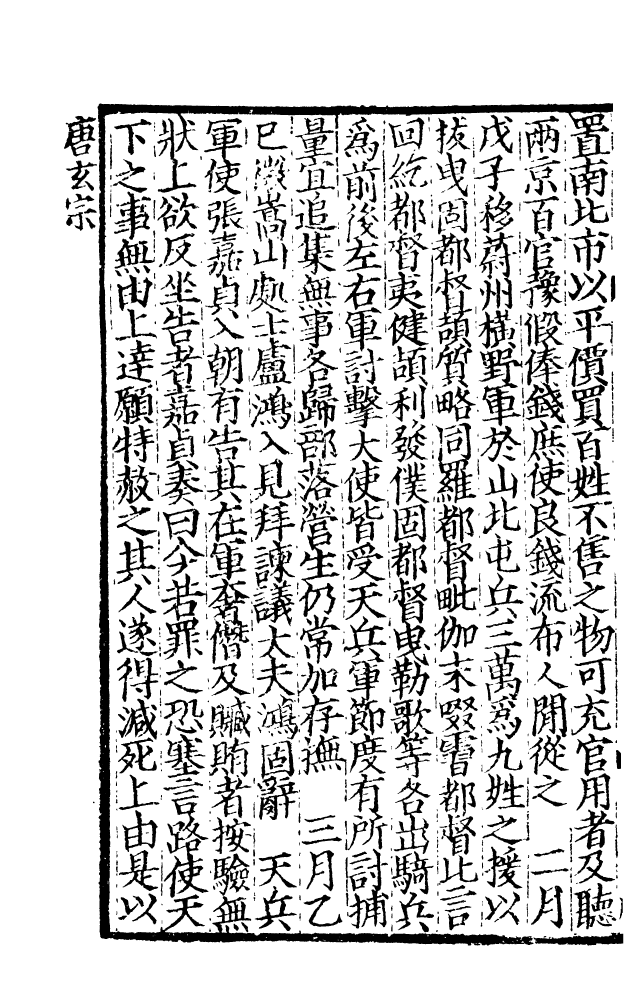 置南北市以平價買百姓不售之物可充官用者及聽
兩京百官豫假俸錢庶使良錢流布人閒從之　二月
戊子移蔚州橫野軍於山北屯兵三萬爲九姓之援以
拔曳固都督頡質略同羅都督毗伽末啜霫都督比言
回紇都督夷健頡利發僕固都督曳勒歌等各出騎兵
爲前後左右軍討擊大使皆受天兵軍節度有所討捕
量宜追集無事各歸部落營生仍常加存撫　三月乙
巳徵嵩山處士盧鴻入見拜諫議大夫鴻固辭　天兵
軍使張嘉貞入朝有告其在軍奢僭及贓賄者按驗無
狀上欲反坐告者嘉貞奏曰今若罪之恐塞言路使天
下之事無由上達願特赦之其人遂得減死上由是以
唐玄宗